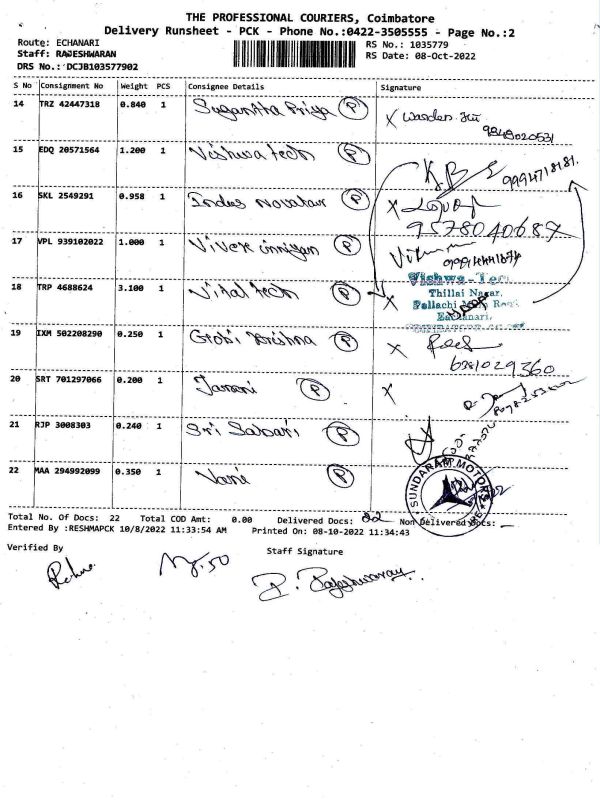 THE PROFESSIONAL COURIERS, Coimbatore
Delivery Runsheet - PCK - Phone No.:0422-3505555 - Page No.:2
Route: ECHANARI
RS No.: 1035779
Staff: RAJESHWARAN
RS Date: 08-Oct-2022
DRS No.: DCJB103577902
S No Consignment No Weight PCS Consignee Details Signature
14 TRZ 42447318 0.840 1 Sugantha Priya P
15 EDQ 20571564 1.200 1 Vishwa tech P
9994718181.
16 SKL 2549291 0.958 1 Indus Novateur P
17 VPL 939102022 1.000 1 Vivek inniyan P
Vishwa-Tec
18 TRP 4688624 3.100 1 Vital tech P
Thillai Nagar,
Pollachi Main Road
Eachanari,
19 IXM 502208290 0.250 1 Gobi Krishna P
6381029360
20 SRT 701297066 0.200 1 Janani P
21 RJP 3008303 0.240 1 Sri Sabari P
22 MAA 294992099 0.350 1 Vani P
SUNDARAM MOTORS
Total No. Of Docs: 22 Total COD Amt: 0.00 Delivered Docs: 22 Non Delivered Docs:
Entered By :RESHMAPCK 10/8/2022 11:33:54 AM Printed On: 08-10-2022 11:34:43
Verified By Staff Signature